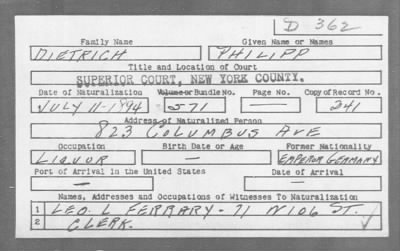 D-362
Family Name Given Name or Names
DIETRICH PHILIPP
Title and Location of Court
SUPERIOR COURT, NEW YORK COUNTY.
Date of Naturalization Volume or Bundle No. Page No. Copy of Record No.
JULY 11-1894 571 — 241
Address of Naturalized Person
823 COLUMBUS AVE
Occupation Birth Date or Age Former Nationality
LIQUOR — EMPEROR GERMANY
Port of Arrival in the United States Date of Arrival
— —
Names, Addresses and Occupations of Witnesses To Naturalization
1 LEO. L FERRARY - 71 W 106 ST.
2 CLERK.